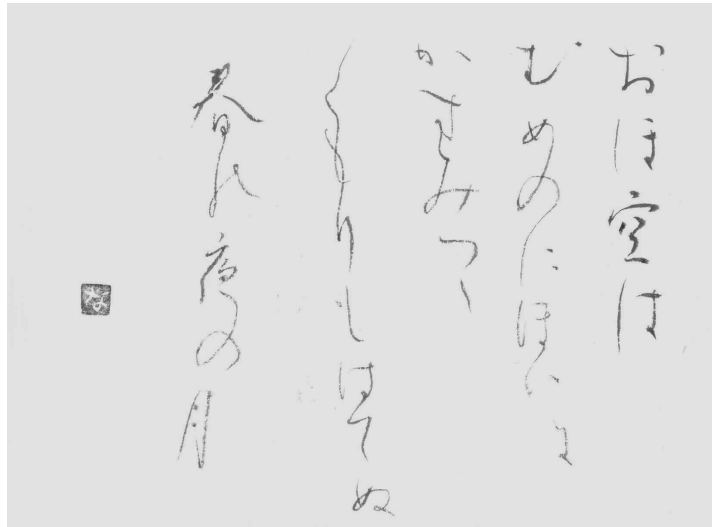 おほ空は
むめのにほひに
かすみつゝ
くもりもはてぬ
春の夜の月